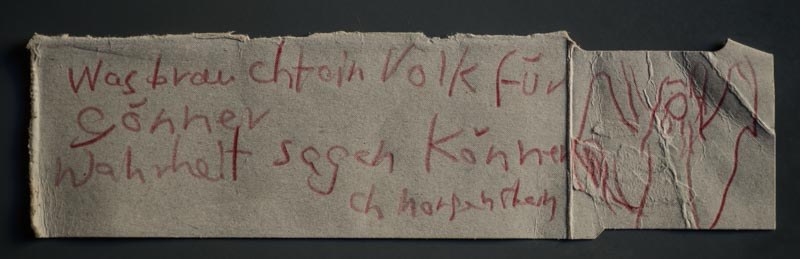 Was brauchtein Volk für
gönner
Wahrheit sagen Können
ch morgenstern